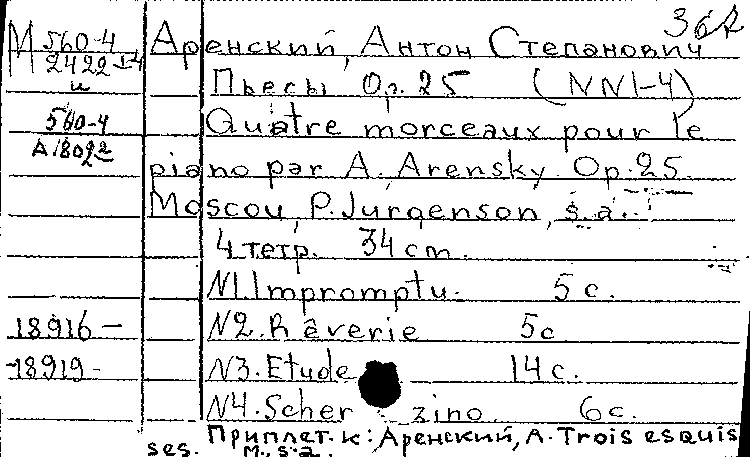 М 560-4
2422 1-4
и
560-4
А 18022
18916-
18919-
362
Аренский, Антон Степанович
Пьесы Op. 25 (NN1-4)
Quatre morceaux pour le
piano par A. Arensky. Op. 25.
Moscou, P. Jurgenson, s.a.
4 тетр. 34 cm.
N1. Impromptu. 5 c.
N2. Rêverie 5c
N3. Etude 14c.
N4. Scherzino 6c.
Приплет. к: Аренский, А. Trois esquis
ses. М., s.a.